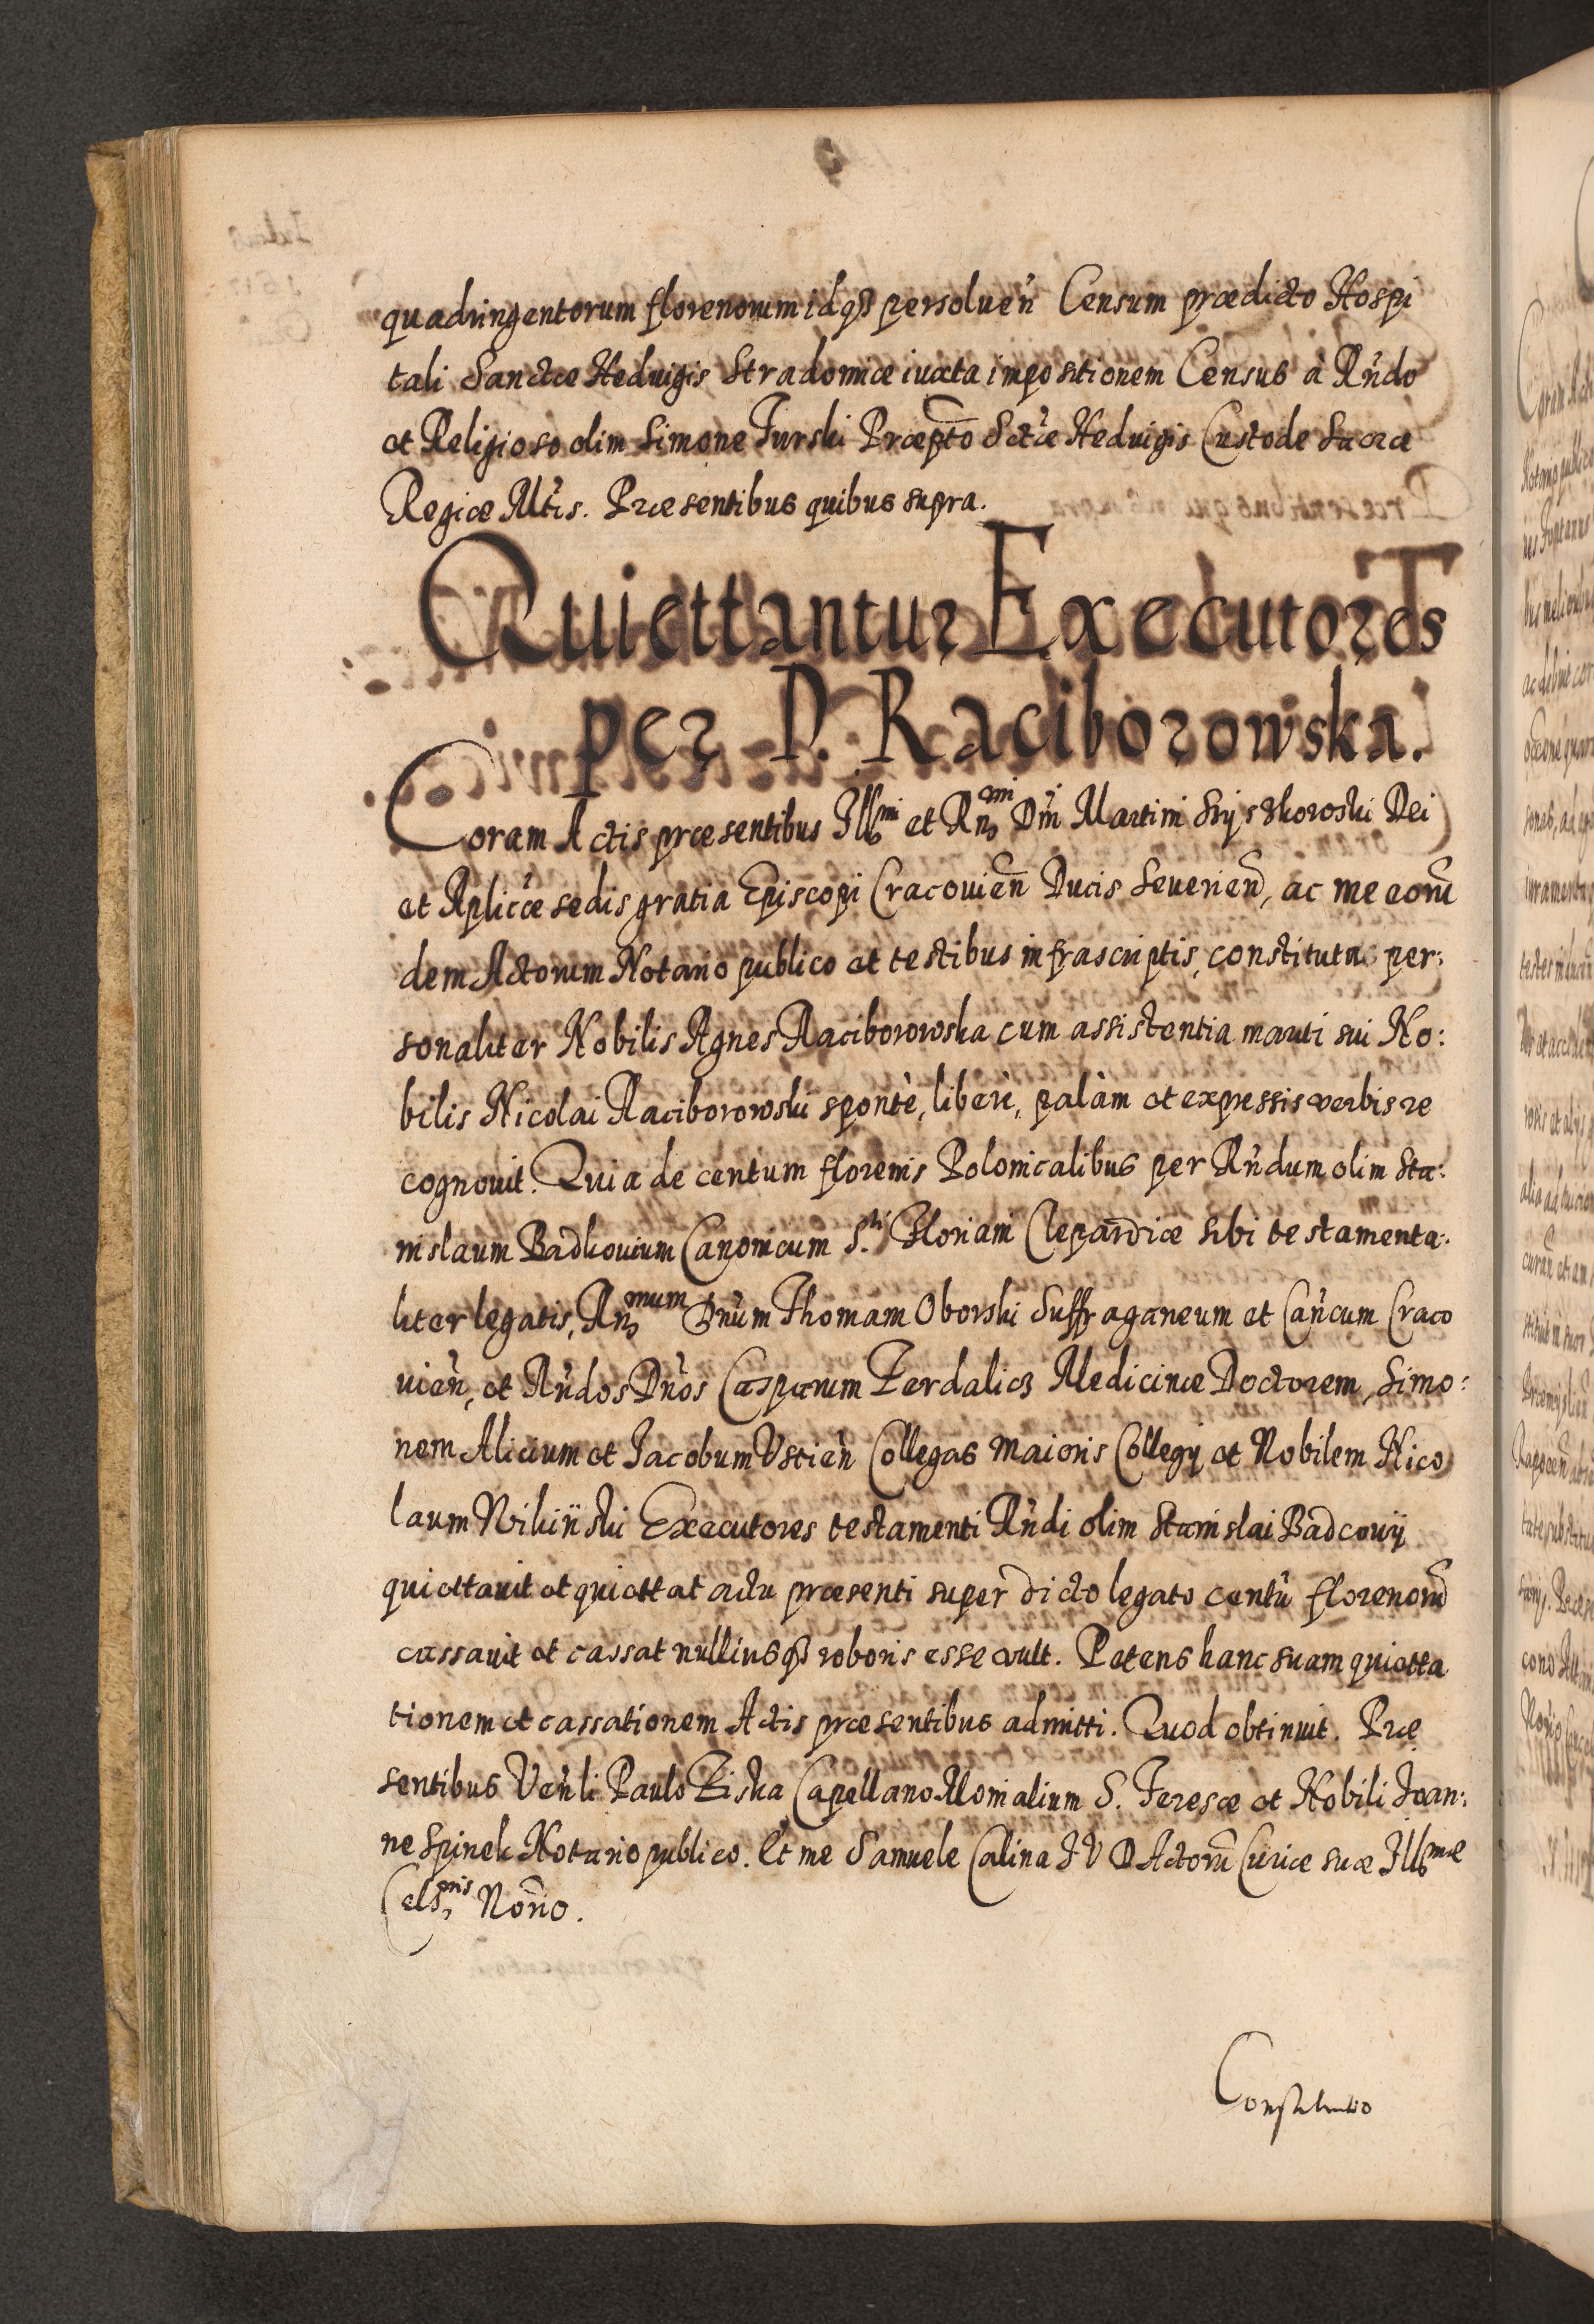 quadringentorum florenorum idqȝ persoluen̄ Censum prædicto Hospi
tali Sanctæ Heduigis Stradomiæ iuxta impositionem Census à Rn̄do
et Religioso olim Simone Turski Præpt̄o Sctæ Heduigis Custode Sacræ
Regiæ Mt̄is. Præsentibus quibus supra.
Quiettantur Executores
per D. Raciborowska.
Coram Actis præsentibus Illmi et Rnmi Dn̄i Martini Szyszkowski Dei
et Ap̄licæ sedis gratia Episcopi Cracouien̄ Ducis Seuerien̄, ac me eorū
dem Actorum Notario publico et testibus infrascriptis, constituta per:
sonaliter Nobilis Agnes Raciborowska cum assistentia mariti sui No:
bilis Nicolai Raciborowski spontè, liberè, palàm et expressis verbis re
cognouit. Quia de centum florenis Polonicalibus per Rn̄dum olim Sta:
nislaum Badkouium Canonicum S.ti Floriani Clepardiæ sibi testamenta:
liter legatis, Rnmum Dn̄um Thomam Oborski Suffraganeum et Can̄cum Craco
uien̄, et Rn̄dos Dn̄os Casparum Zerdalicz Medicinæ Doctorem, Simo:
nem Alicium et Jacobum Vstien̄ Collegas Maioris Collegij et Nobilem Nico
laum Executores testamenti Rn̄di olim Stanislai Badcouij
quiettauit et quiettat actu præsenti super dicto legato centū florenorū
cassauit et cassat nulliusqȝ roboris esse vult. Petens hanc suam quietta
tionem et cassationem Actis præsentibus admitti. Quod obtinuit. Præ
sentibus Ven̄li Paulo Ziska Capellano Monialium S. Teresæ et Nobili Joan:
ne Spinek Notario publico. Et me Samuele Calina J V D Actorū Curiæ suæ Illmæ
Cels.nis Nor̄io.
Constitutio